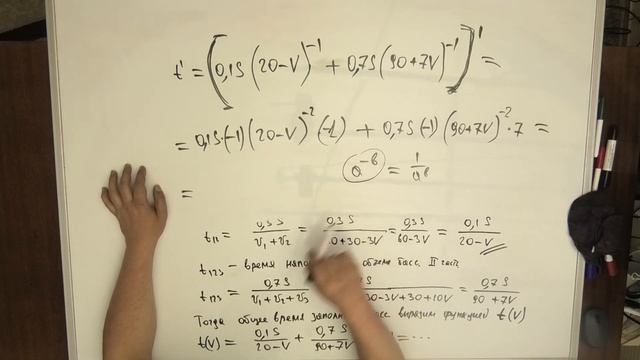 t' = (0,1S(20-V)^-1 + 0,7S(90+7V)^-1)' =
= 0,1S·(-1)(20-V)^-2(-1) + 0,7S(-1)(90+7V)^-2·7 =
a^-b = 1/a^b
=
t₁₂ = 0,3S/(v₁+v₂) = 0,3S/ 0+30-3V = 0,3S/(60-3V) = 0,1S/(20-V)
t₁₂₃ - время басс. II
t₁₂₃ = 0,7S/(v₁+v₂+v₃) 30-3V+30+10V = 0,7S/(90+7V)
Тогда общее время выразим функцией t(V)
t(V) = 0,1S/(20-V) + 0,7S/(90+7V) = ...